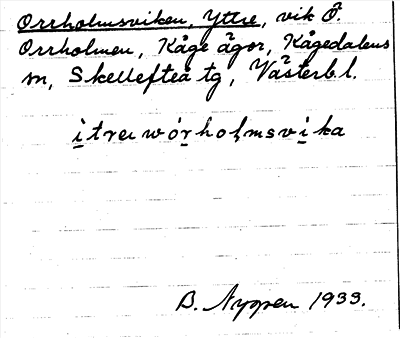 Orrholmsviken, Yttre, vik Ö.
Orrholmen, Kåge ägor, Kågedalens
sn, Skellefteå tg, Västerb. l.
i̱treɩwór̲hoḷmsvi̱ka
B. Nygren 1933.